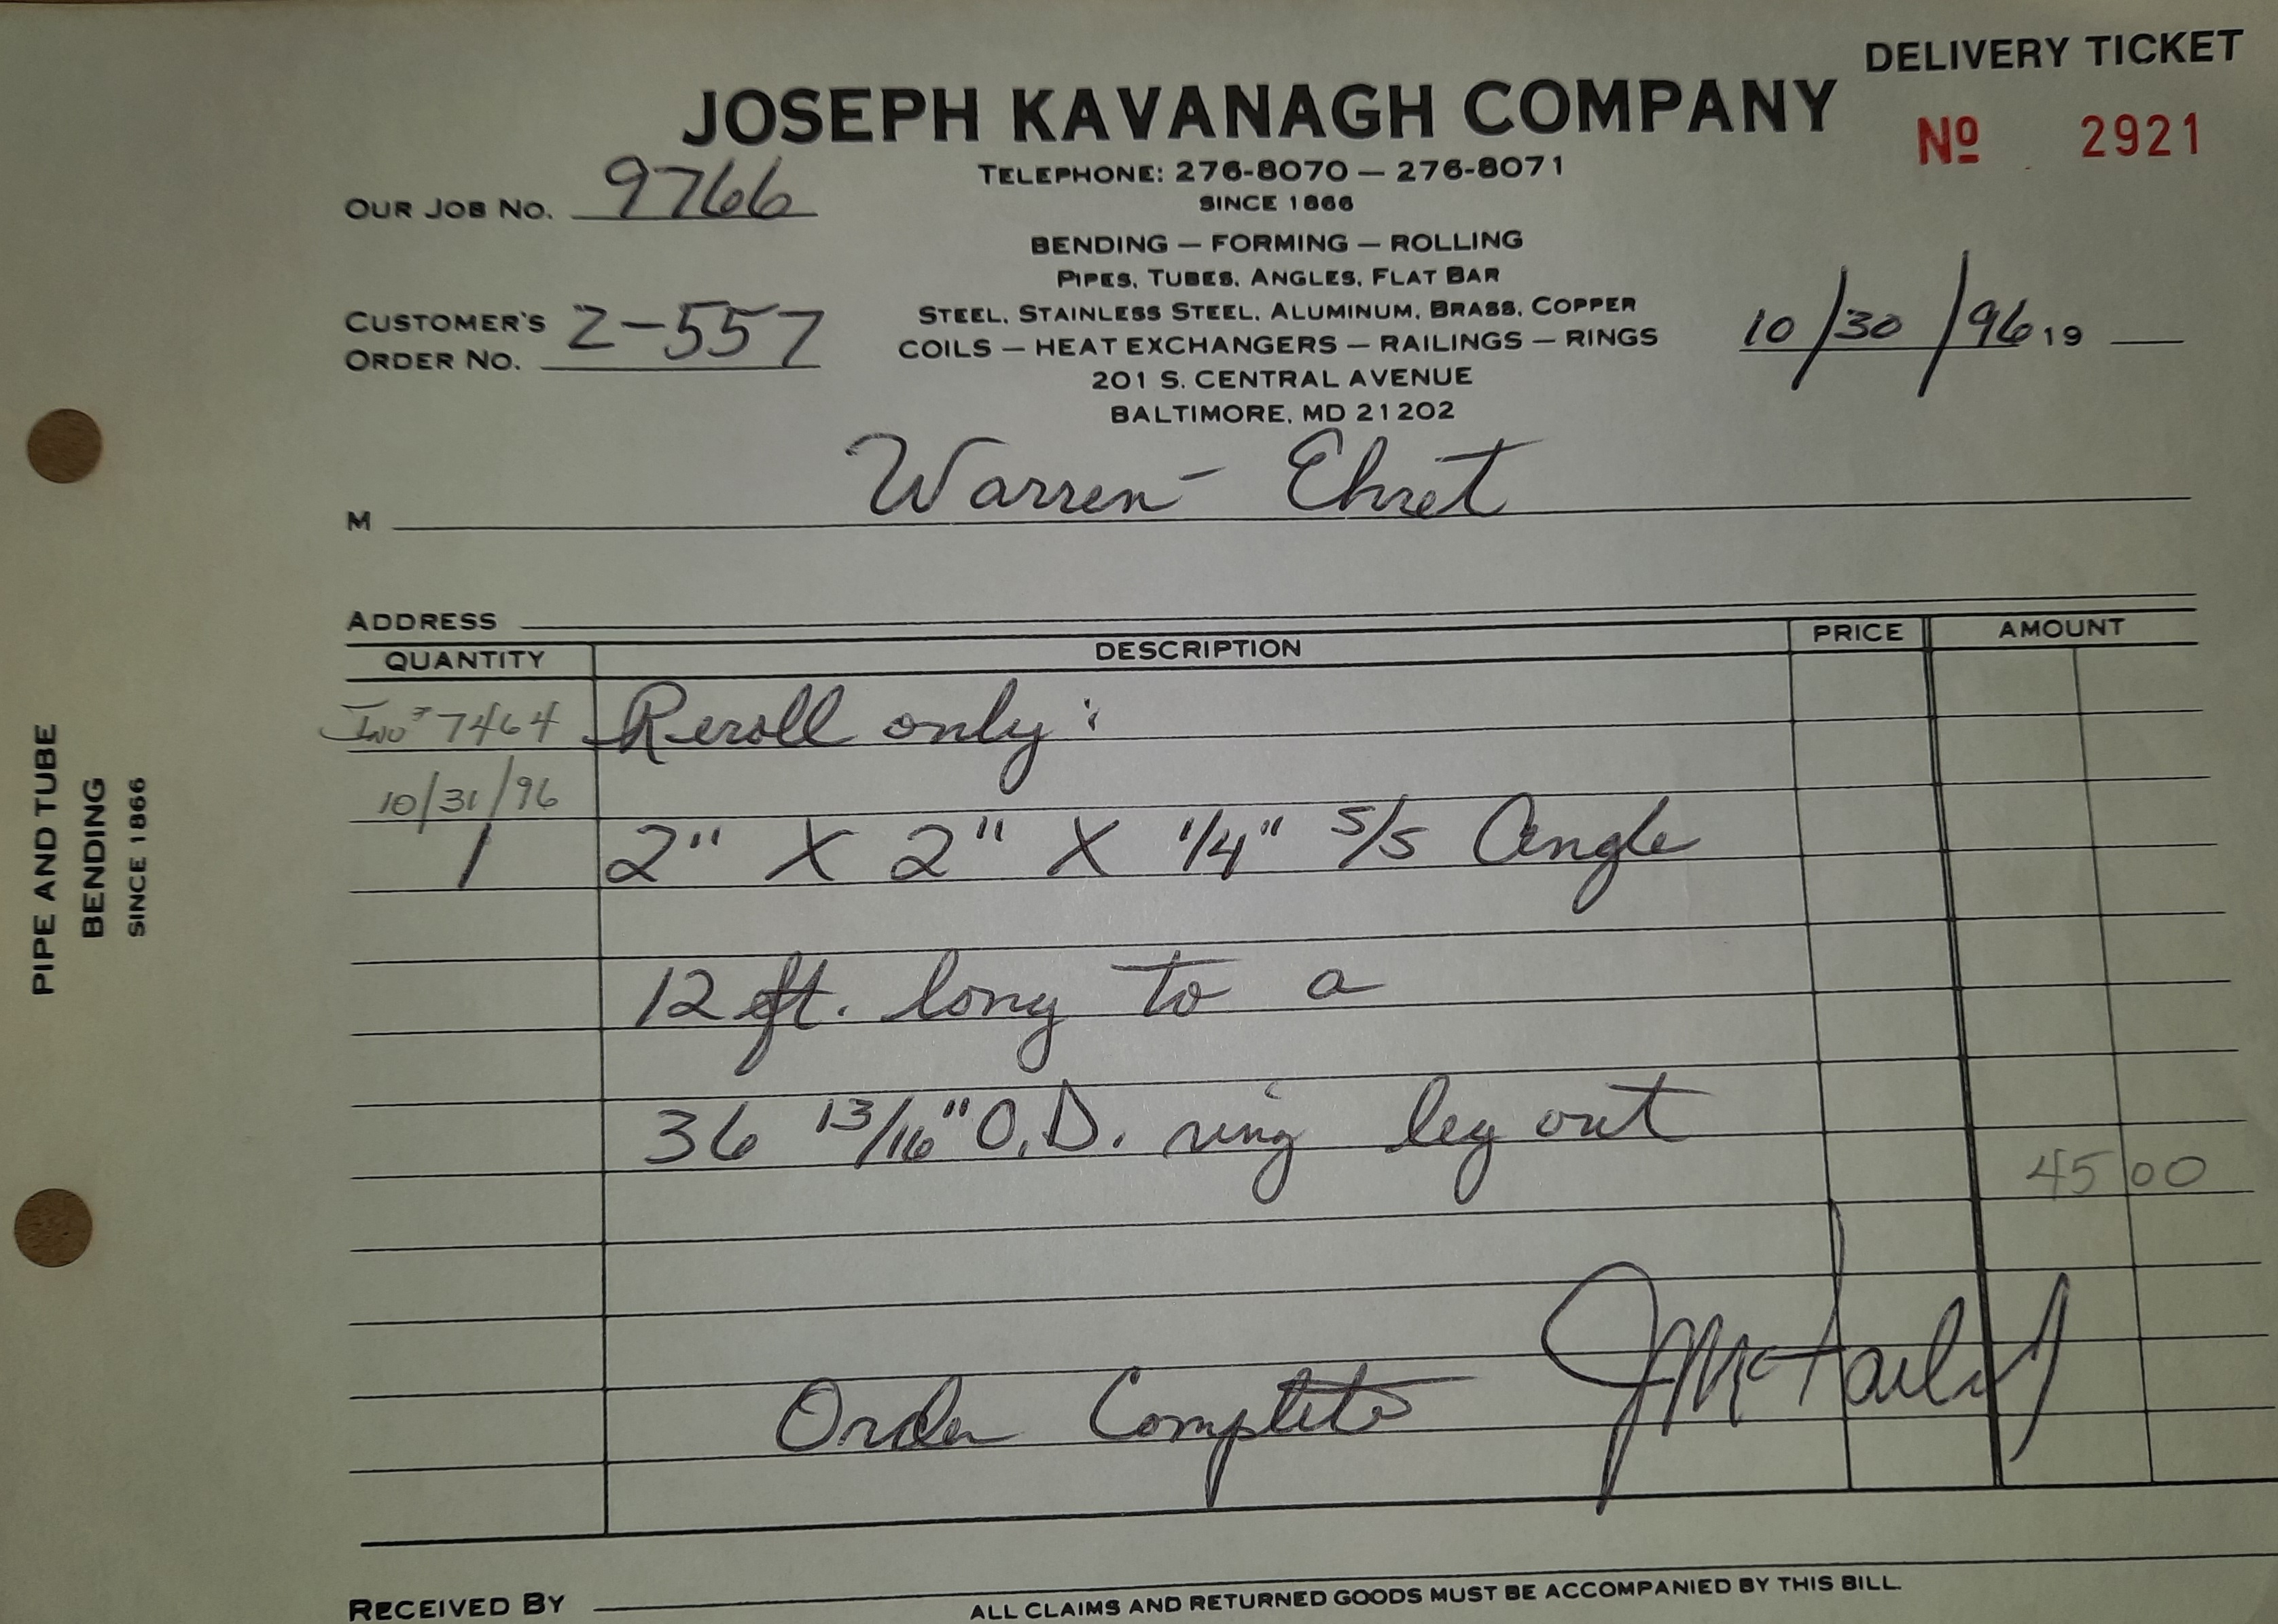 DELIVERY TICKET
JOSEPH KAVANAGH COMPANY
Nº 2921
TELEPHONE: 276-8070 — 276-8071
SINCE 1866
OUR JOB NO. 9766
BENDING — FORMING — ROLLING
PIPES, TUBES, ANGLES, FLAT BAR
STEEL, STAINLESS STEEL, ALUMINUM, BRASS, COPPER
CUSTOMER'S ORDER NO. Z-557
COILS — HEAT EXCHANGERS — RAILINGS — RINGS
10/30/96 19
201 S. CENTRAL AVENUE
BALTIMORE, MD 21202
M Warren-Ehret
ADDRESS
QUANTITY DESCRIPTION PRICE AMOUNT
Inv# 7464 Reroll only:
10/31/96
1 2" X 2" X 1/4" S/S Angle
12 ft. long to a
36 13/16" O.D. ring leg out
45 00
Order Complete
RECEIVED BY
ALL CLAIMS AND RETURNED GOODS MUST BE ACCOMPANIED BY THIS BILL.
PIPE AND TUBE
BENDING
SINCE 1866